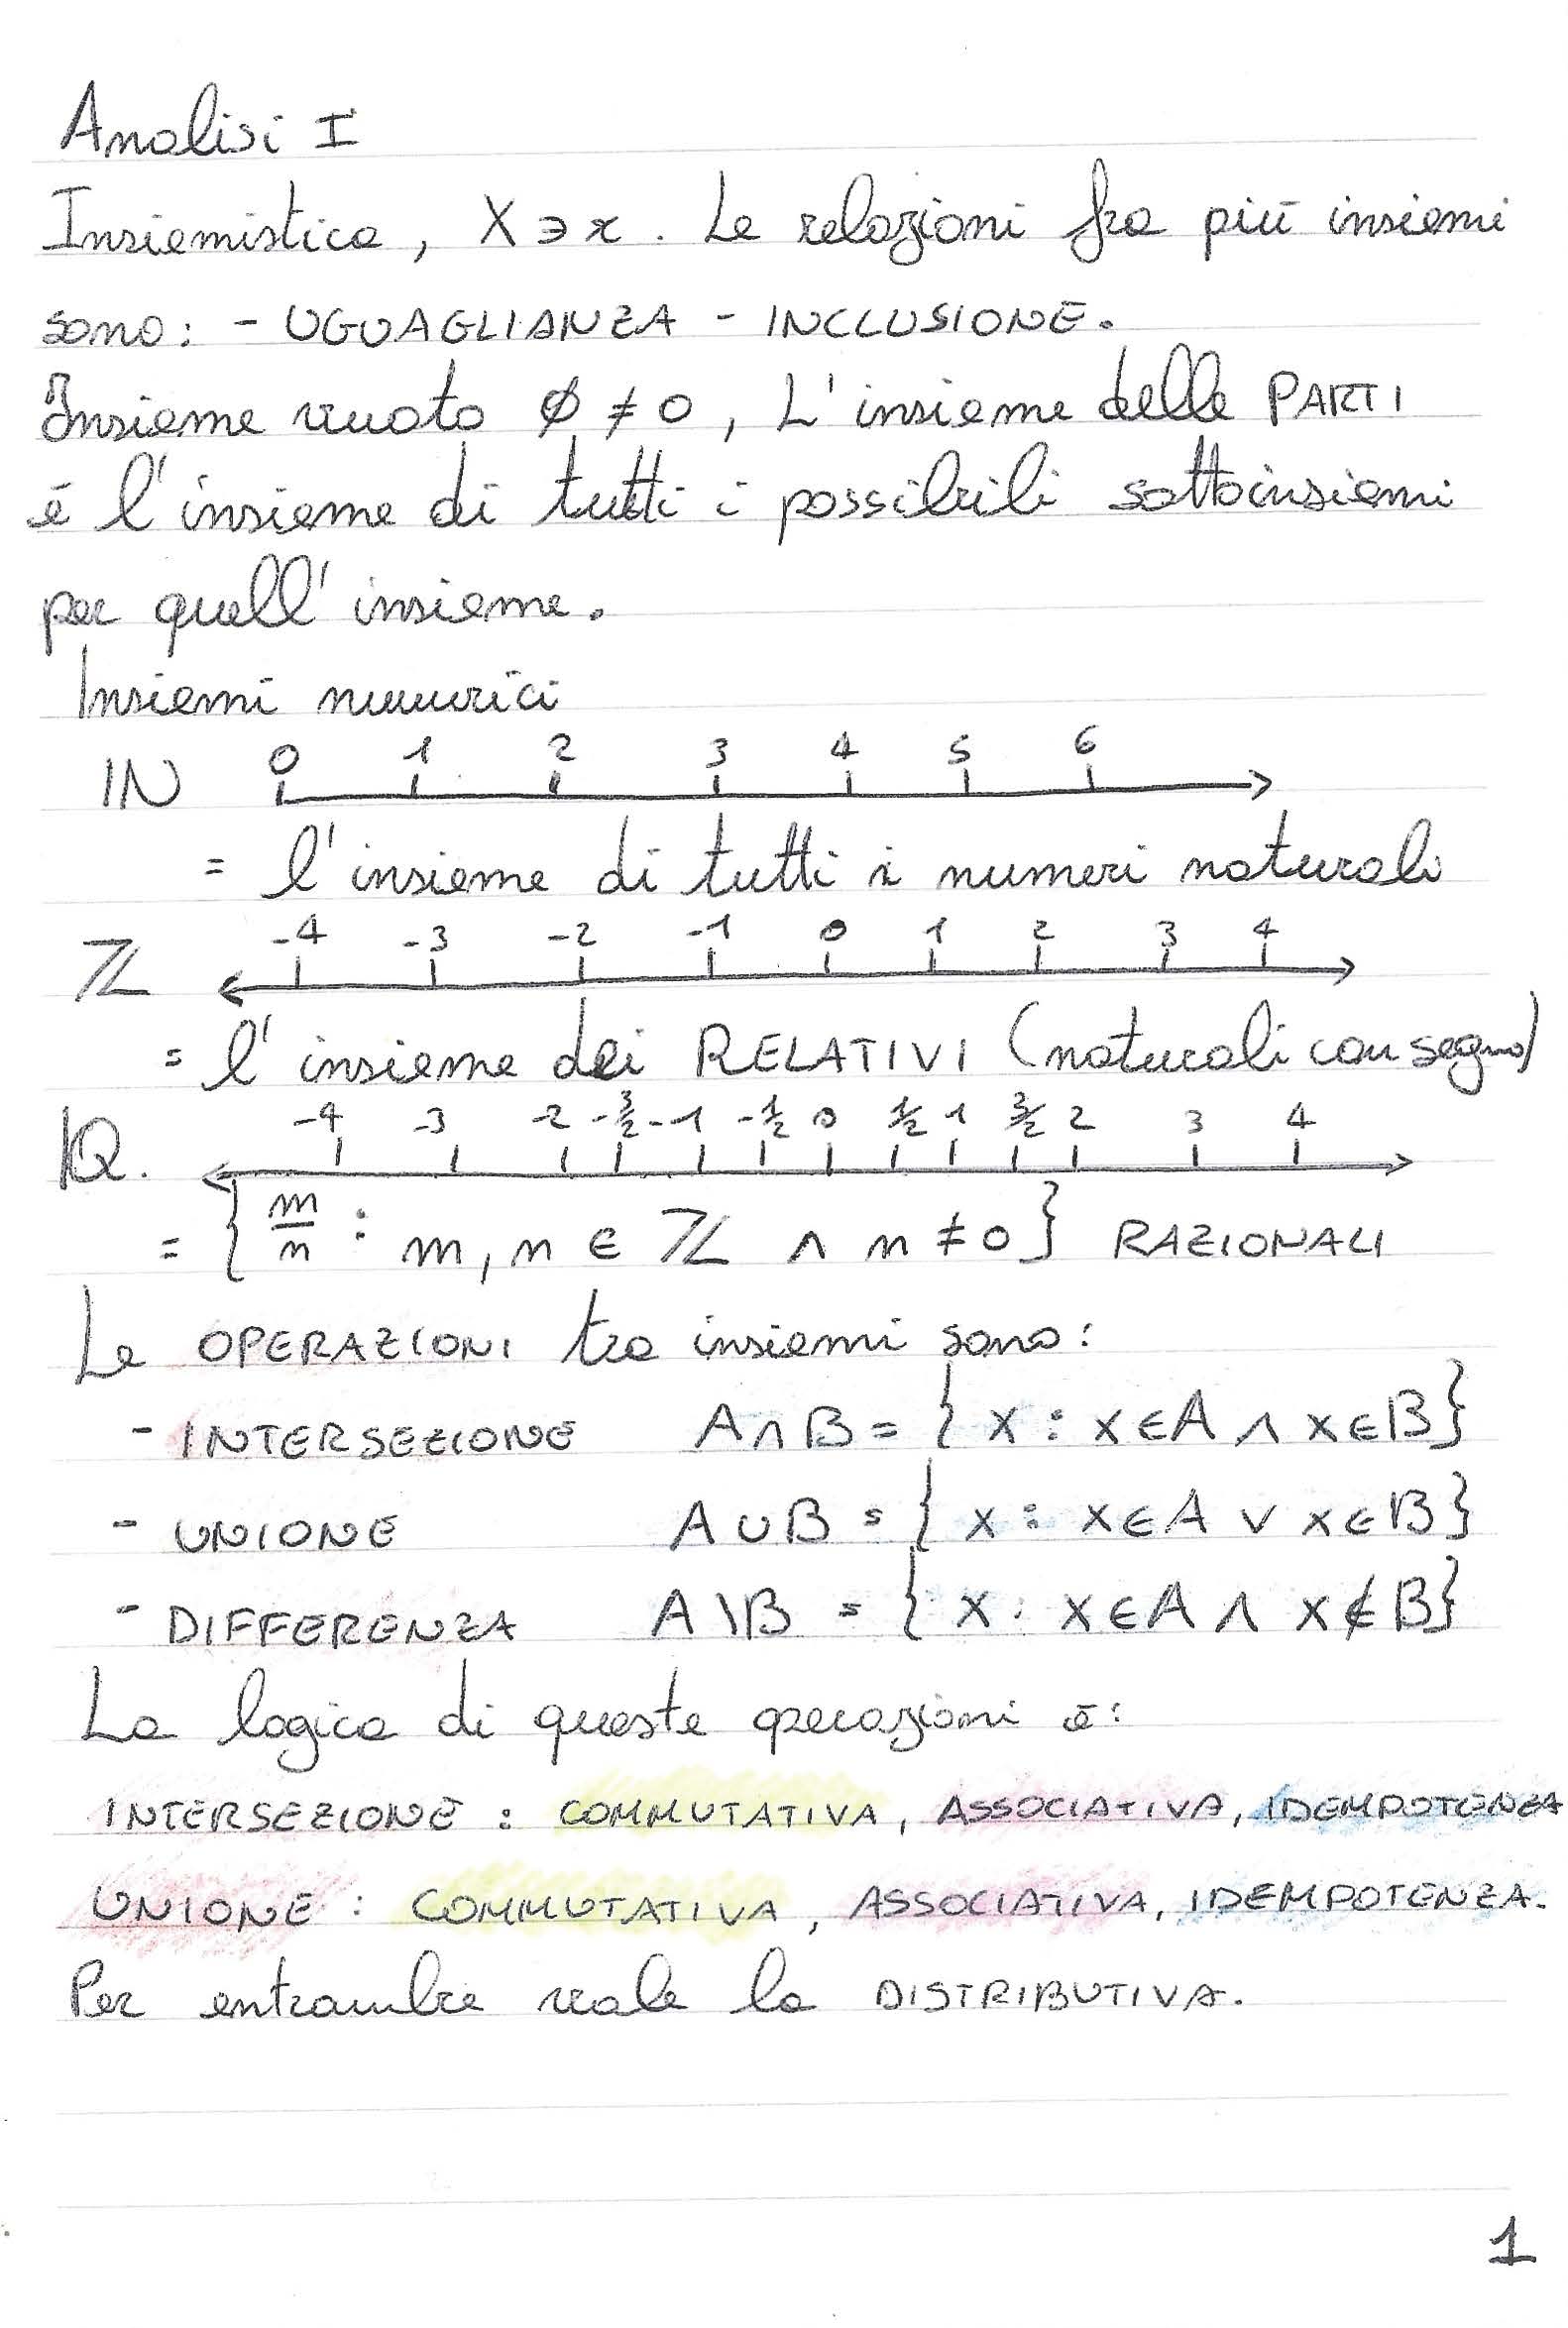 Analisi I
Insiemistica, X ∋ x. Le relazioni fra più insiemi
sono: - UGUAGLIANZA - INCLUSIONE.
Insieme vuoto ∅ ≠ 0, L'insieme delle PARTI
è l'insieme di tutti i possibili sottoinsiemi
per quell'insieme.
Insiemi numerici
ℕ 0 1 2 3 4 5 6
= l'insieme di tutti i numeri naturali
ℤ -4 -3 -2 -1 0 1 2 3 4
= l'insieme dei RELATIVI (naturali con segno)
ℚ. -4 -3 -2 -3/2 -1 -1/2 0 1/2 1 3/2 2 3 4
= { m/n : m, n ∈ ℤ ∧ n ≠ 0 } RAZIONALI
Le OPERAZIONI tra insiemi sono:
- INTERSEZIONE A ∩ B = { x : x ∈ A ∧ x ∈ B }
- UNIONE A ∪ B = { x : x ∈ A ∨ x ∈ B }
- DIFFERENZA A \ B = { x : x ∈ A ∧ x ∉ B }
La logica di queste operazioni è:
INTERSEZIONE : COMMUTATIVA, ASSOCIATIVA, IDEMPOTENZA
UNIONE : COMMUTATIVA, ASSOCIATIVA, IDEMPOTENZA.
Per entrambe vale la DISTRIBUTIVA.
1